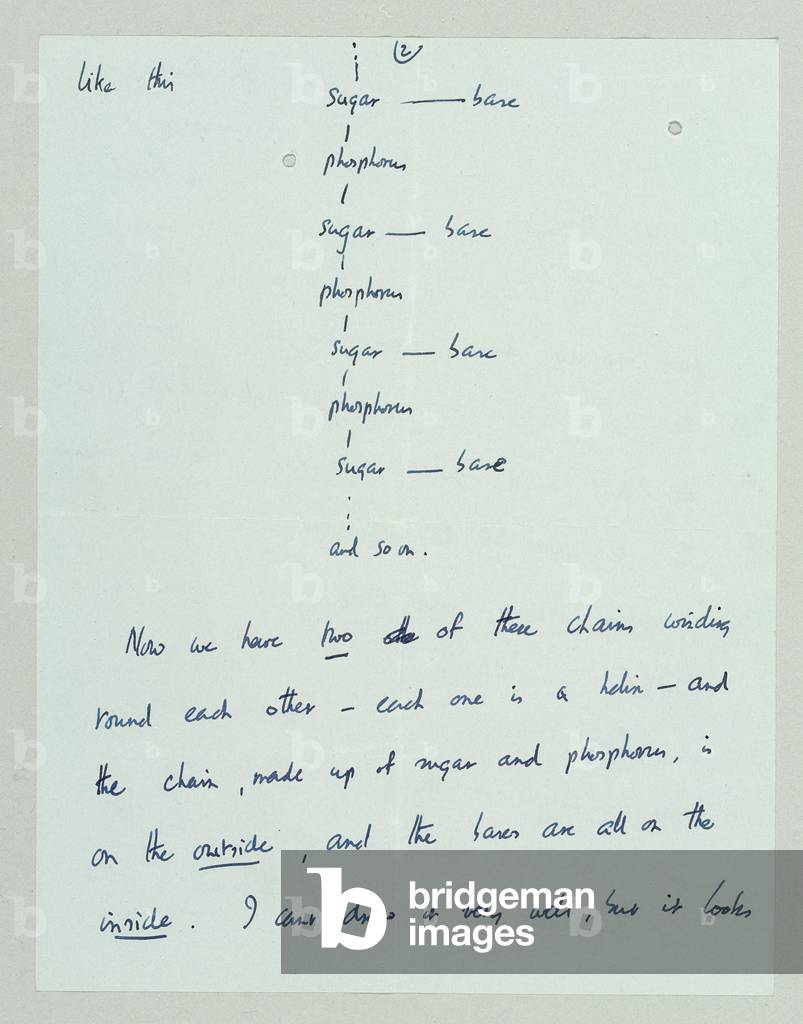 2
like this
sugar — base
phosphorus
sugar — base
phosphorus
sugar — base
phosphorus
sugar — base
and so on.
Now we have two of these chains winding
round each other – each one is a helix – and
the chain, made up of sugar and phosphorus, is
on the outside, and the bases are all on the
inside. I can't draw it very well, but it looks
bridgeman
images